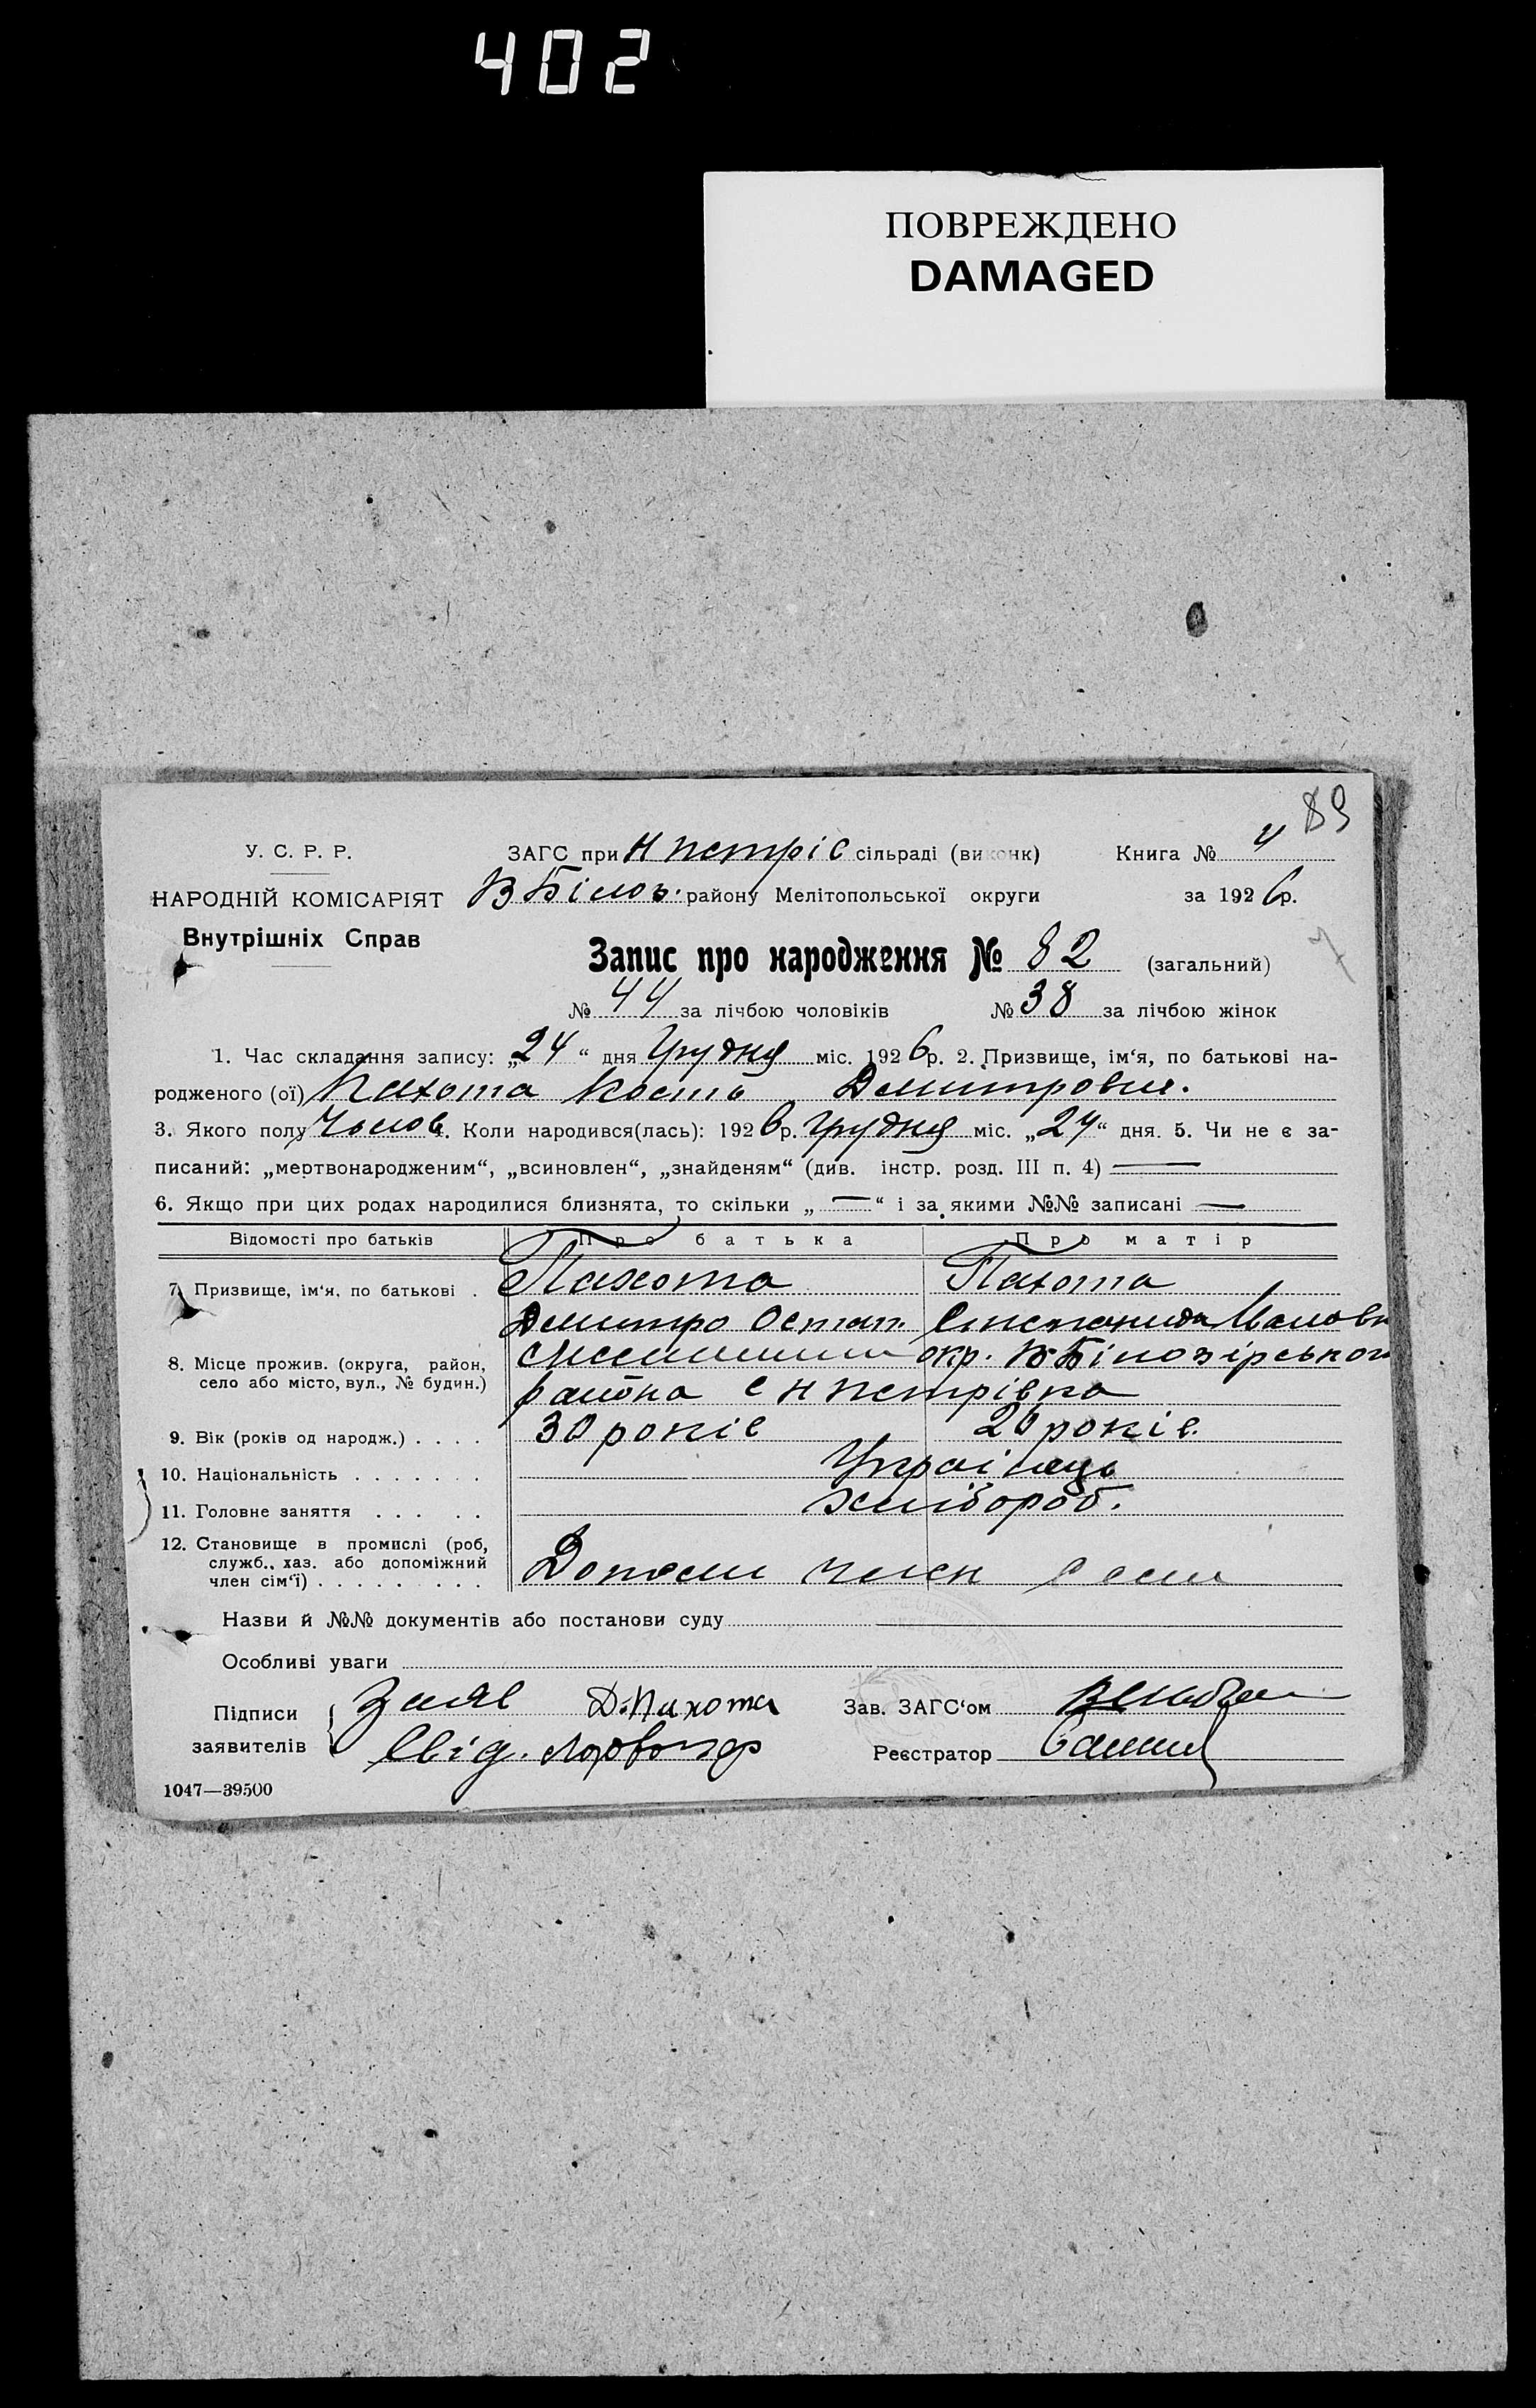 402
ПОВРЕЖДЕНО
DAMAGED
89
У. С. Р. Р. ЗАГС при Н Петрів сільраді (виконк) Книга № 4
НАРОДНІЙ КОМІСАРІЯТ В Білоз. району Мелітопольської округи за 1926р.
Внутрішніх Справ
Запис про народження № 82 (загальний)
№ 44 за лічбою чоловіків № 38 за лічбою жінок
1. Час складання запису: „24“ дня Грудня міс. 1926р. 2. Призвище, ім‘я, по батькові на-
родженого (ої) Пахота Кость Дмитровие.
3. Якого полу Чолов. Коли народився(лась): 1926р. Грудня міс. „24“ дня. 5. Чи не є за-
писаний: „мертвонародженим“, „всиновлен“, „знайденям“ (див. інстр. розд. III п. 4) —
6. Якщо при цих родах народилися близнята, то скільки „ — “ і за якими №№ записані —
Відомості про батьків Про батька Про матір
7. Призвище, ім‘я, по батькові . Пахота Пахота
Дмитро Остап. Степанида
8. Місце прожив. (округа, район, окр. В Білозірського
село або місто, вул., № будин.) района с Н Петрівка
9. Вік (років од народж.) . . . . 30 років 26 років.
10. Національність . . . . . . . Українець
11. Головне заняття . . . . . хлібороб.
12. Становище в промислі (роб,
служб., хаз. або допоміжний
член сім‘ї) . . . . . . . . . член
Назви й №№ документів або постанови суду
Особливі уваги
Підписи Заяв Д. Пахота Зав. ЗАГС‘ом
заявителів Свід. Реєстратор
1047—39500